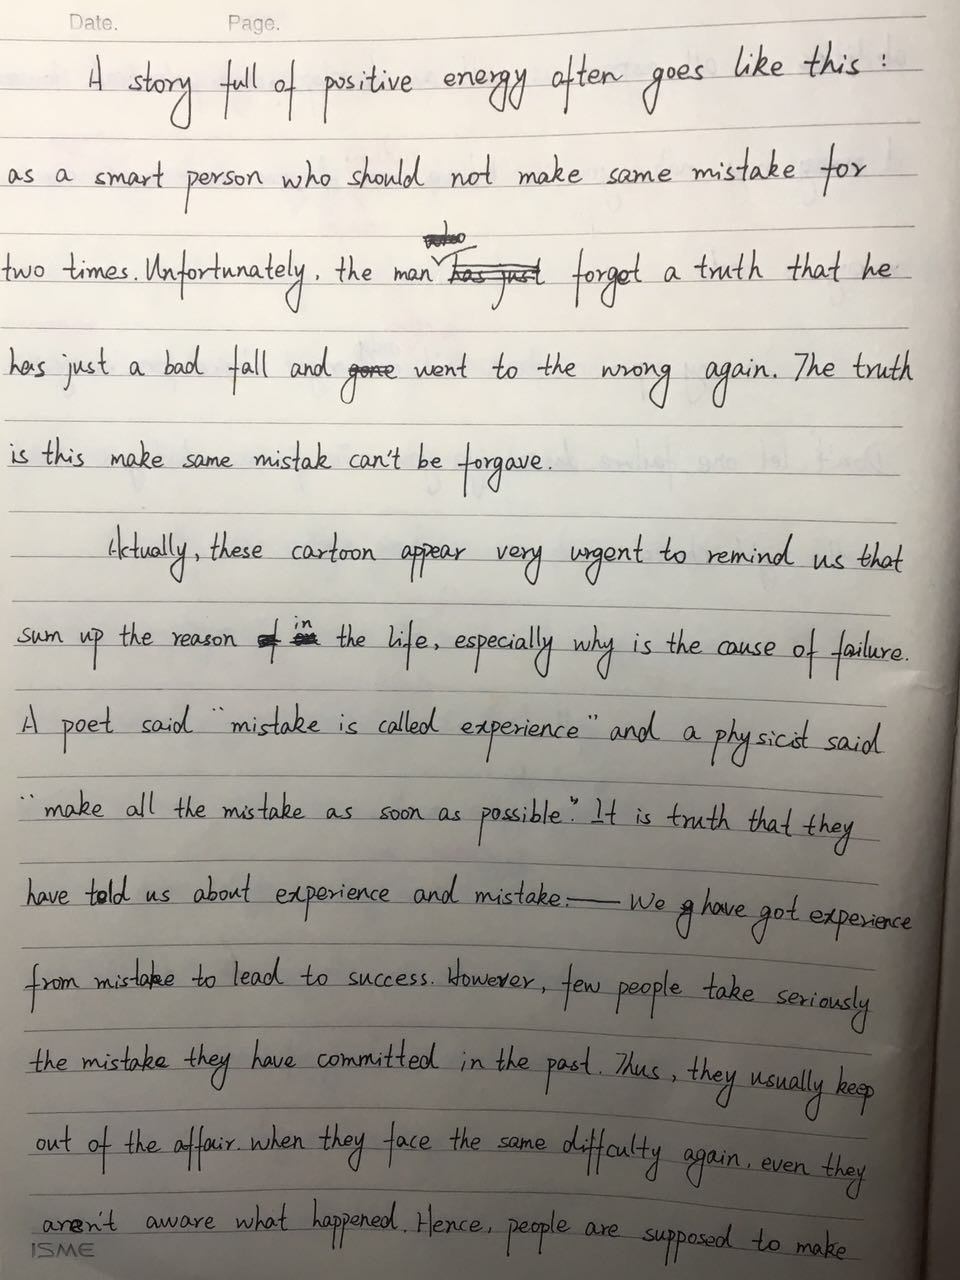 Date. Page.
A story full of positive energy often goes like this :
as a smart person who should not make same mistake for
two times. Unfortunately, the man has just forget a truth that he
has just a bad fall and gone went to the wrong again. The truth
is this make same mistak can't be forgave.
Actually, these cartoon appear very urgent to remind us that
sum up the reason of in the life, especially why is the cause of failure.
A poet said "mistake is called experience" and a physicist said
"make all the mistake as soon as possible." It is truth that they
have told us about experience and mistake. — We have got experience
from mistake to lead to success. However, few people take seriously
the mistake they have committed in the past. Thus, they usually keep
out of the affair. when they face the same difficulty again, even they
aren't aware what happened. Hence, people are supposed to make
ISME